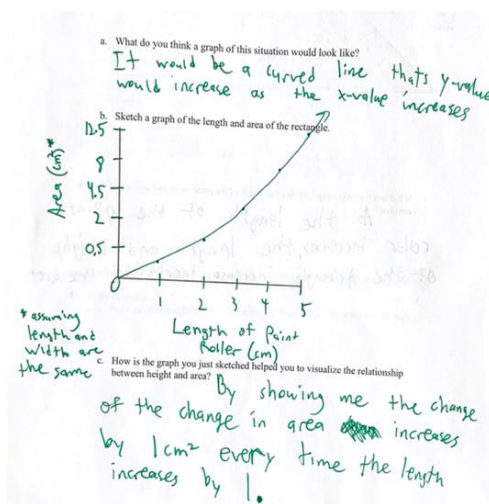 a. What do you think a graph of this situation would look like?
It would be a curved line thats y-value
would increase as the x-value increases
b. Sketch a graph of the length and area of the rectangle.
12.5
8
4.5
2
0.5
0
Area (cm²)*
1 2 3 4 5
Length of Paint
Roller (cm)
* assuming
length and
width are
the same
c. How is the graph you just sketched helped you to visualize the relationship
between height and area?
By showing me the change
of the change in area increases
by 1cm² every time the length
increases by 1.